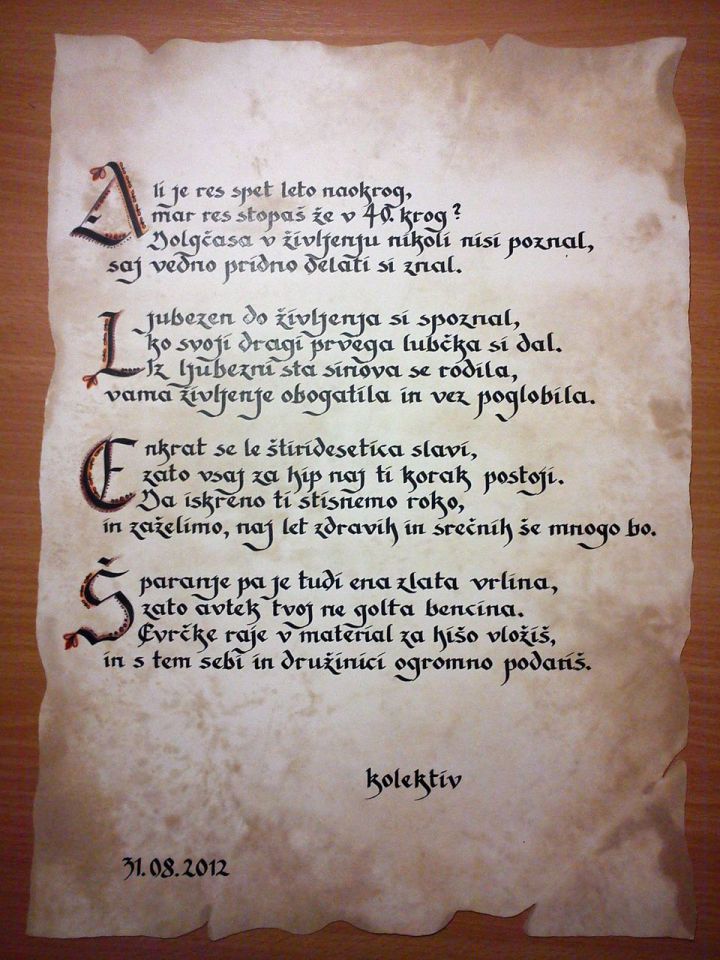 Ali je res spet leto naokrog,
mar res stopaš že v 40. krog?
Dolgčasa v življenju nikoli nisi poznal,
saj vedno pridno delati si znal.
Ljubezen do življenja si spoznal,
ko svoji dragi prvega lubčka si dal.
Iz ljubezni sta sinova se rodila,
vama življenje obogatila in vez poglobila.
Enkrat se le štiridesetica slavi,
zato vsaj za hip naj ti korak postoji.
Da iskreno ti stisnemo roko,
in zaželimo, naj let zdravih in srečnih še mnogo bo.
Šparanje pa je tudi ena zlata vrlina,
zato avtek tvoj ne golta bencina.
Evrčke raje v material za hišo vložiš,
in s tem sebi in družinici ogromno podariš.
kolektiv
31.08.2012